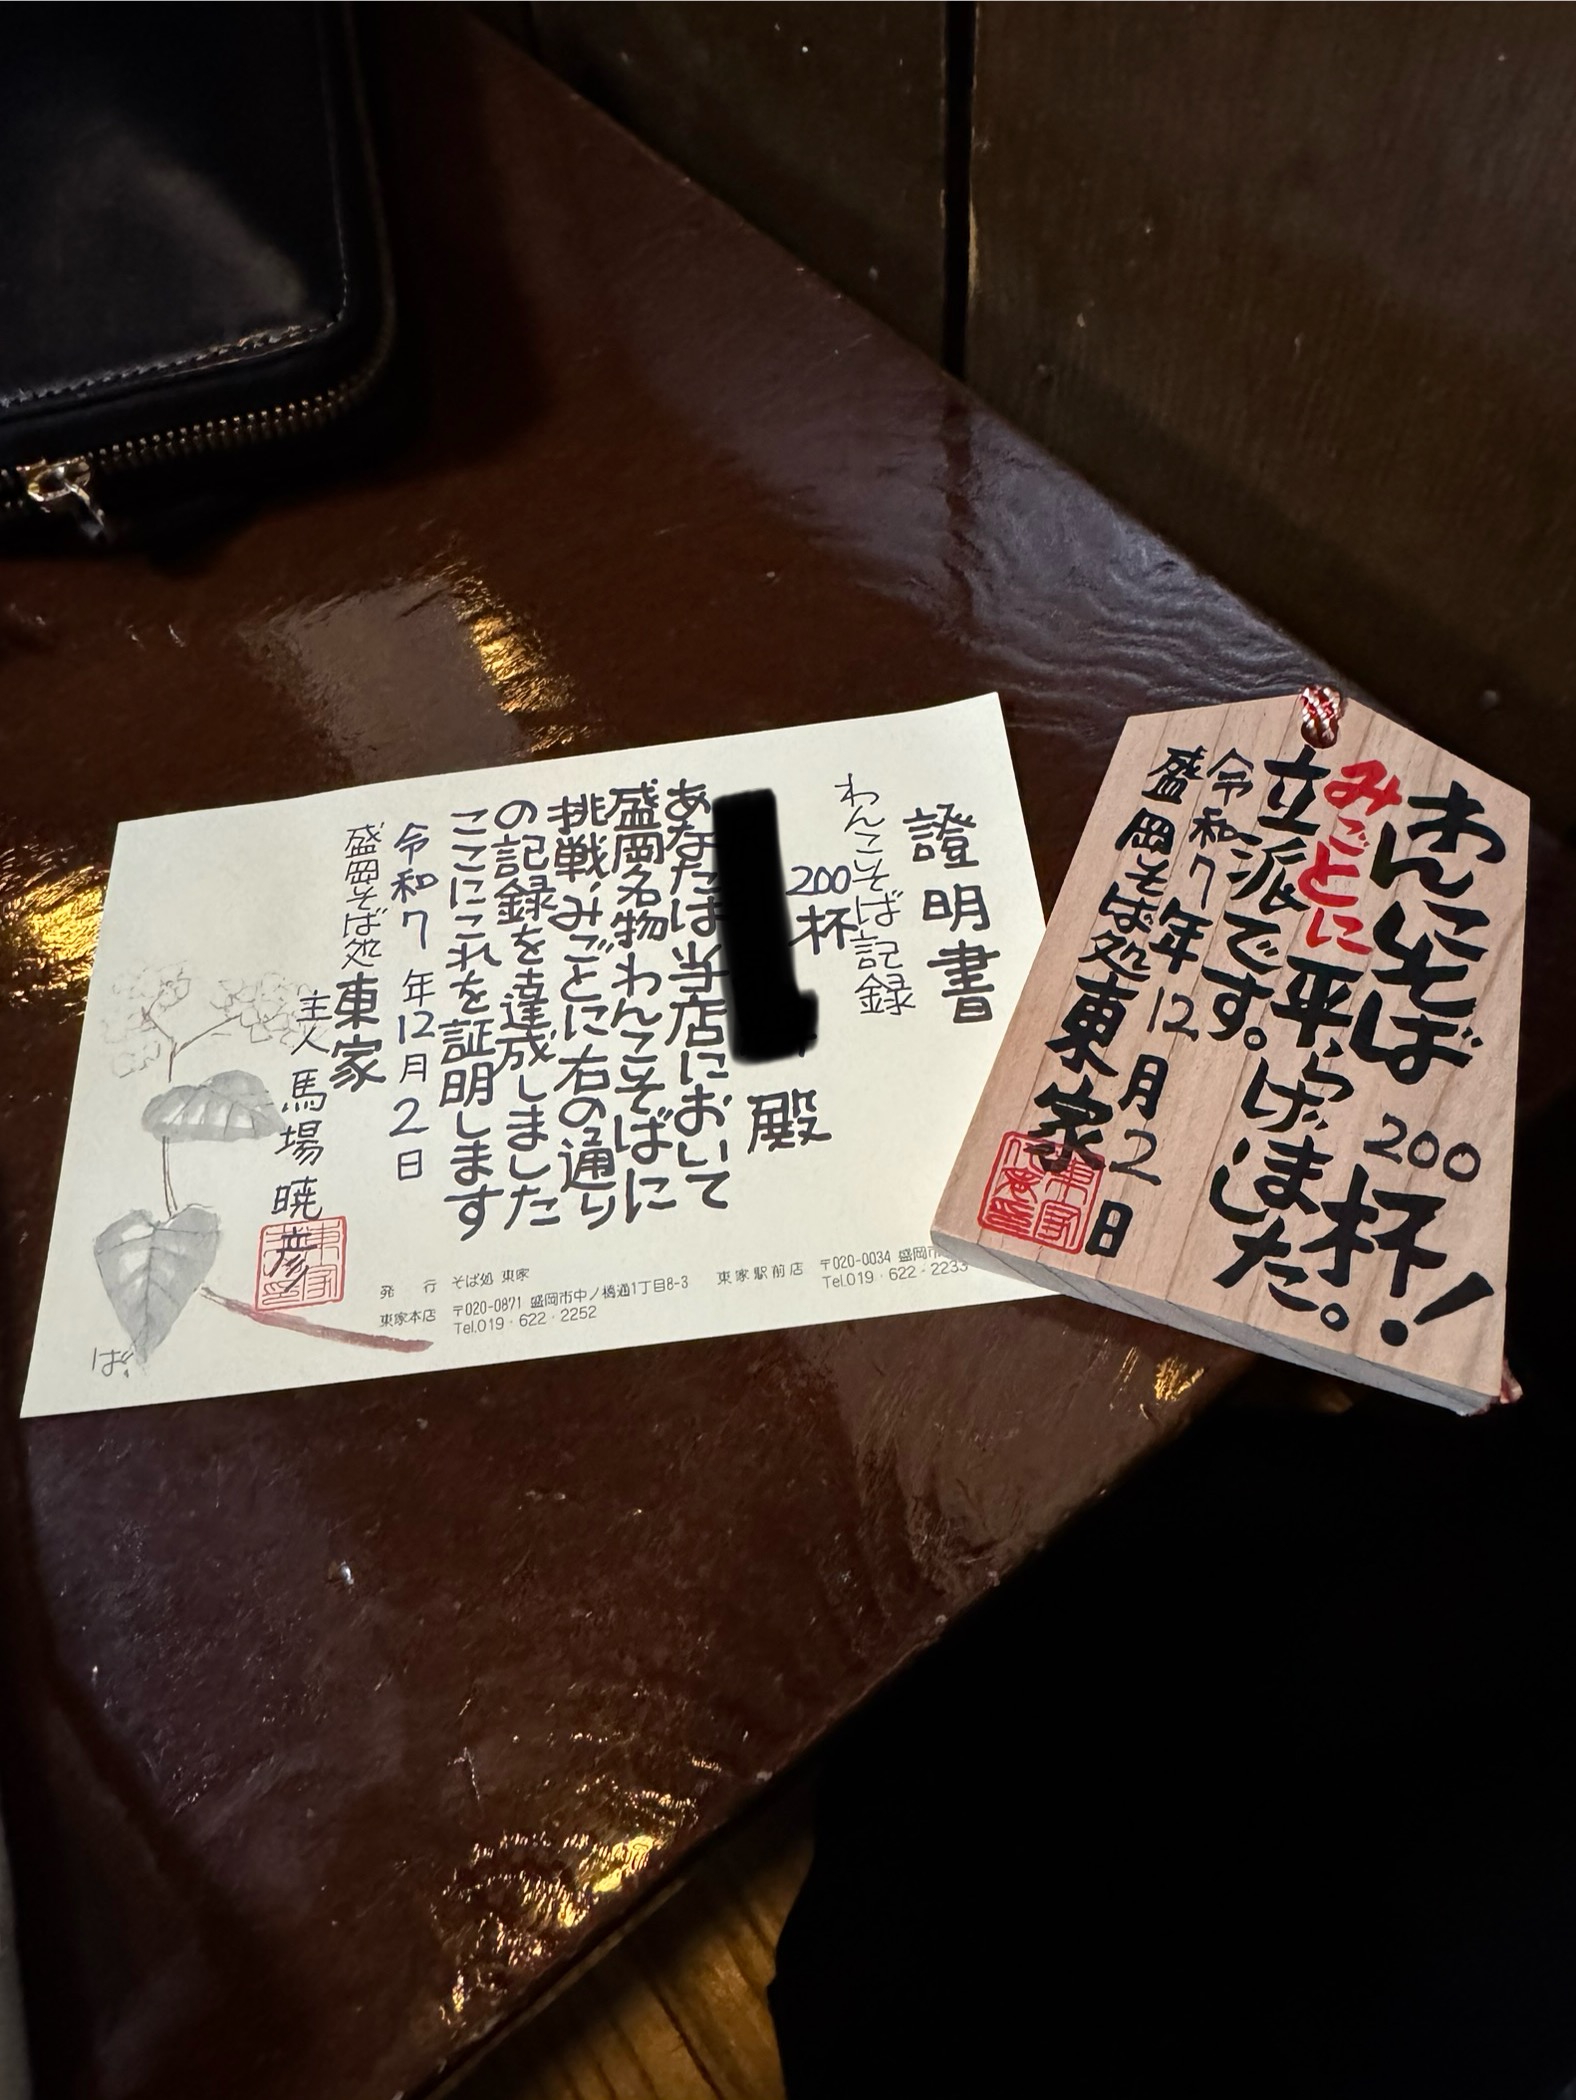 證明書
わんこそば記録
200杯
殿
あなたは当店において
盛岡名物わんこそばに
挑戦、みごとに右の通り
の記録を達成しました
ここにこれを証明します
令和7年12月2日
盛岡そば処 東家
主人 馬場 暁彦
ば
発 行 そば処 東家
東家本店 〒020-0871 盛岡市中ノ橋通1丁目8-3
Tel.019・622・2252
東家駅前店 〒020-0034 盛岡市
Tel.019・622・2233
わんこそば 200杯!
みごとに平らげました。
立派です。
令和7年12月2日
盛岡そば処 東家